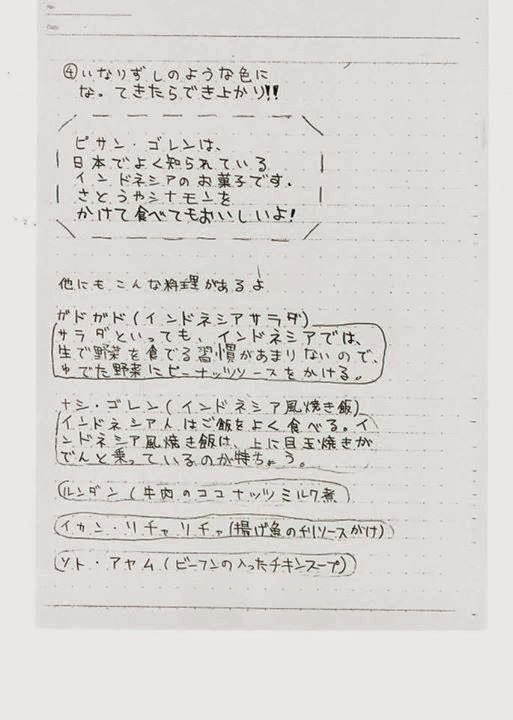 No.
Date
④いなりずしのような色に
な。てきたらでき上がり!!
ピサン・ゴレンは、
日本でよく知られている
インドネシアのお菓子です。
さとうやシナモンを
かけて食べてもおいしいよ!
他にもこんな料理があるよ
ガドガド(インドネシアサラダ)
サラダといっても、インドネシアでは、
生で野菜を食でる習慣があまりないので、
ゆでた野菜にピーナッツソースをかける。
ナシ・ゴレン(インドネシア風焼き飯)
インドネシア人はご飯をよく食べる。イ
ンドネシア風焼き飯は、上に目玉焼きが
でんと乗っているのが特ちょう。
ルンダン(牛肉のココナッツミルク煮
イカン・リチャリチャ(揚げ魚のチリソースがけ)
ソト・アヤム(ビーフンの入ったチキンスープ)